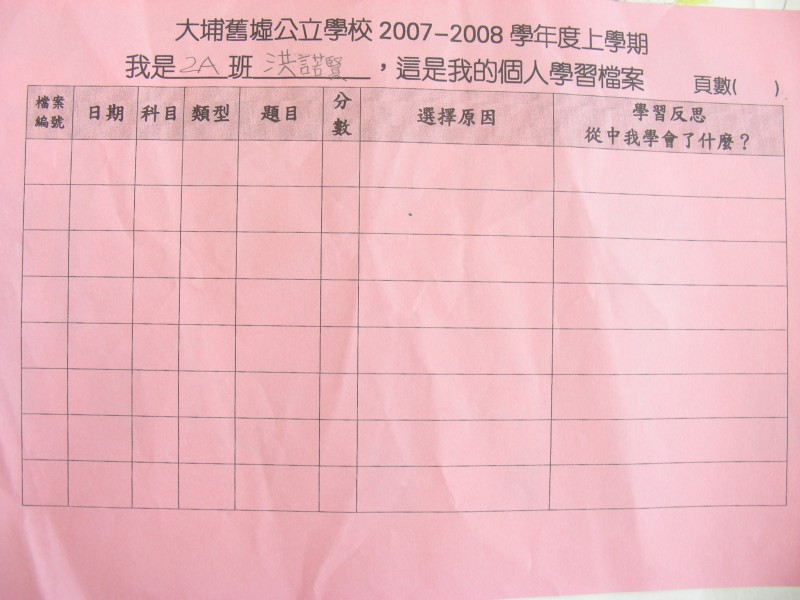 大埔舊墟公立學校 2007-2008 學年度上學期
我是 2A 班 洪諾賢 ，這是我的個人學習檔案 頁數( )
檔案編號 日期 科目 類型 題目 分數 選擇原因 學習反思
從中我學會了什麼？